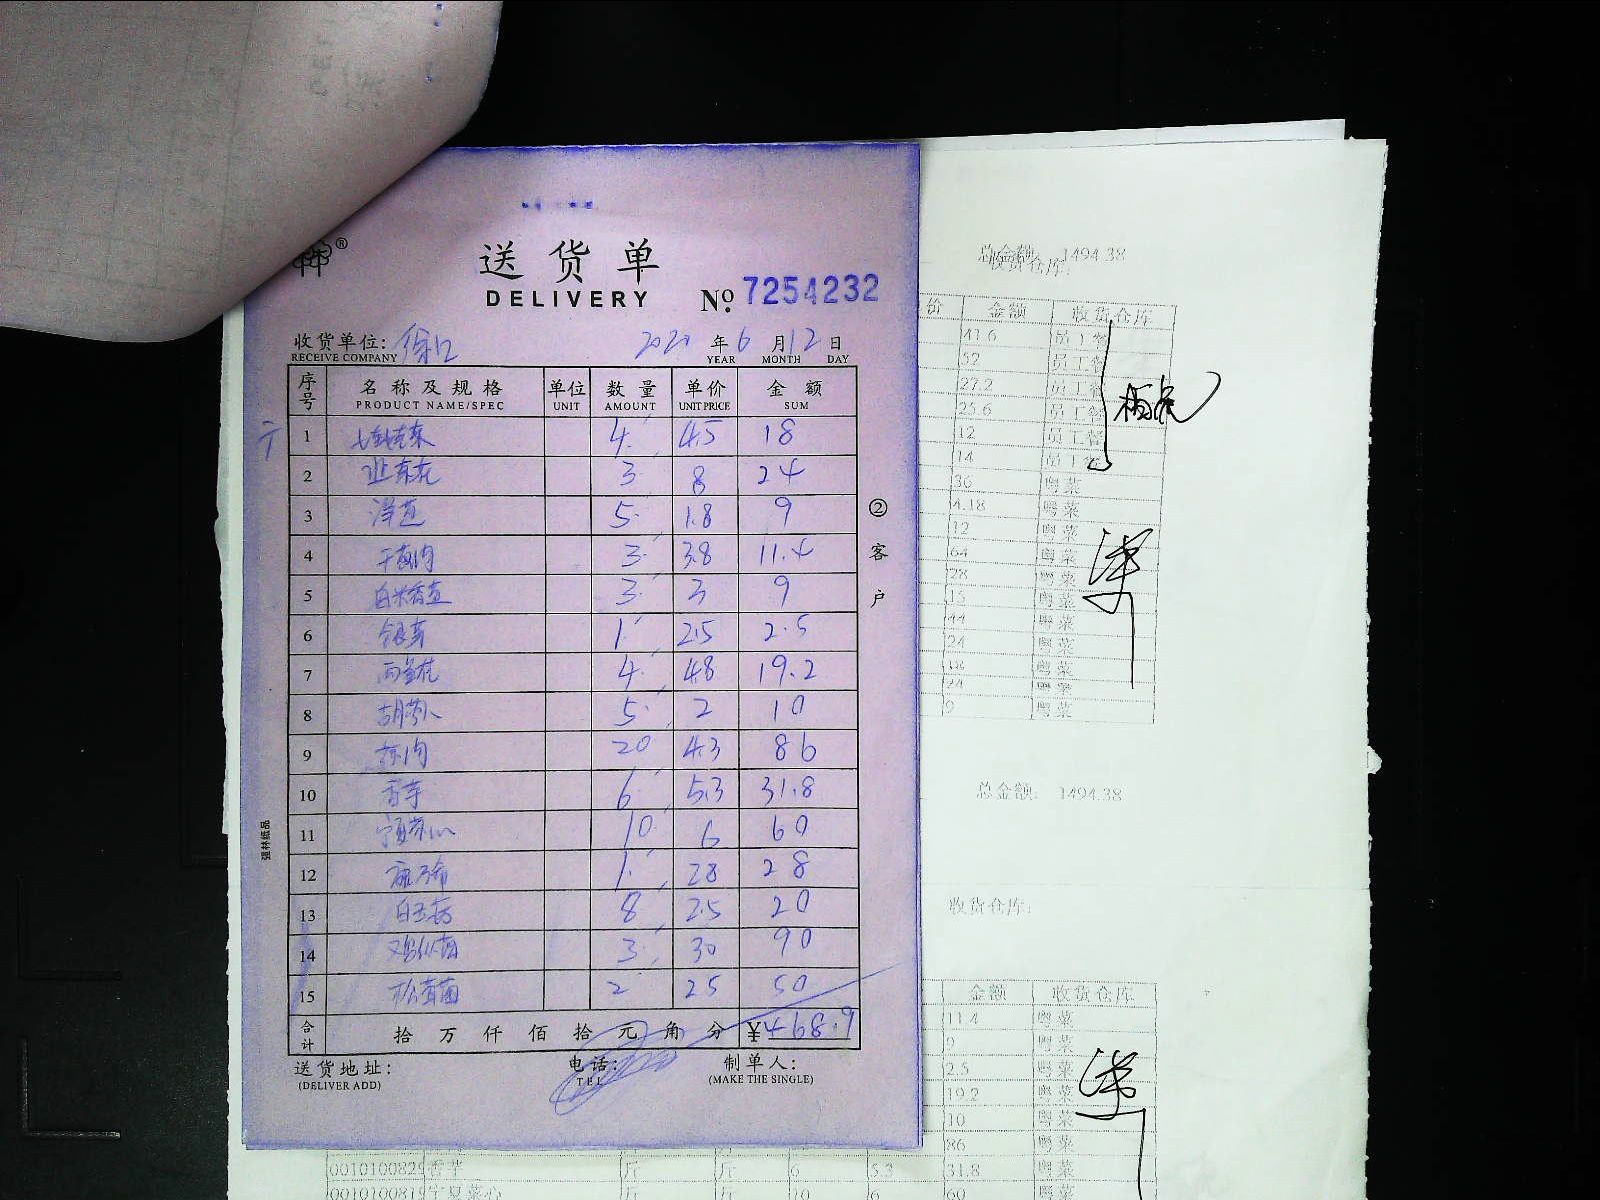 送货单
DELIVERY
No. 7254232
收货单位:
RECEIVE COMPANY
2020 年 6 月 12 日
YEAR MONTH DAY
序号 名称及规格 单位 数量 单价 金额
PRODUCT NAME/SPEC UNIT AMOUNT UNIT PRICE SUM
1 4 4.5 18
2 西兰花 3 8 24
3 洋芋 5 1.8 9
4 3 3.8 11.4
5 3 3 9
6 银芽 1 2.5 2.5
7 4 4.8 19.2
8 胡萝卜 5 2 10
9 20 4.3 86
10 香芋 6 5.3 31.8
11 宁夏菜心 10 6 60
12 1 28 28
13 白玉菇 8 2.5 20
14 鸡枞菌 3 30 90
15 松茸菌 2 25 50
合计 拾 万 仟 佰 拾 元 角 分 ¥468.9
送货地址:
(DELIVER ADD)
电话:
TEL
制单人:
(MAKE THE SINGLE)
②客户
强林纸品
总金额: 1494.38
收货仓库:
价 金额 收货仓库
41.6 员工餐
52 员工餐
27.2 员工餐
25.6 员工餐
12 员工餐
14 员工餐
36 粤菜
4.18 粤菜
12 粤菜
64 粤菜
28 粤菜
15 粤菜
44 粤菜
24 粤菜
粤菜
24 粤菜
9 粤菜
总金额: 1494.38
收货仓库:
金额 收货仓库
11.4 粤菜
9 粤菜
2.5 粤菜
19.2 粤菜
10 粤菜
86 粤菜
0010100829 香芋 斤 斤 6 5.3 31.8 粤菜
0010100819 宁夏菜心 斤 斤 10 6 60 粤菜